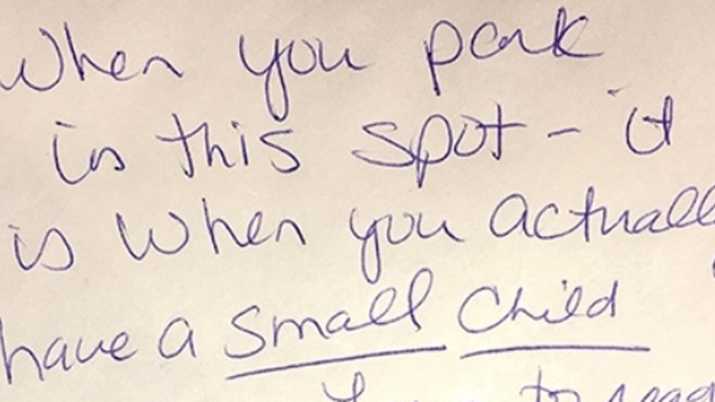 When you park
in this spot - it
is when you actually
have a small child
to